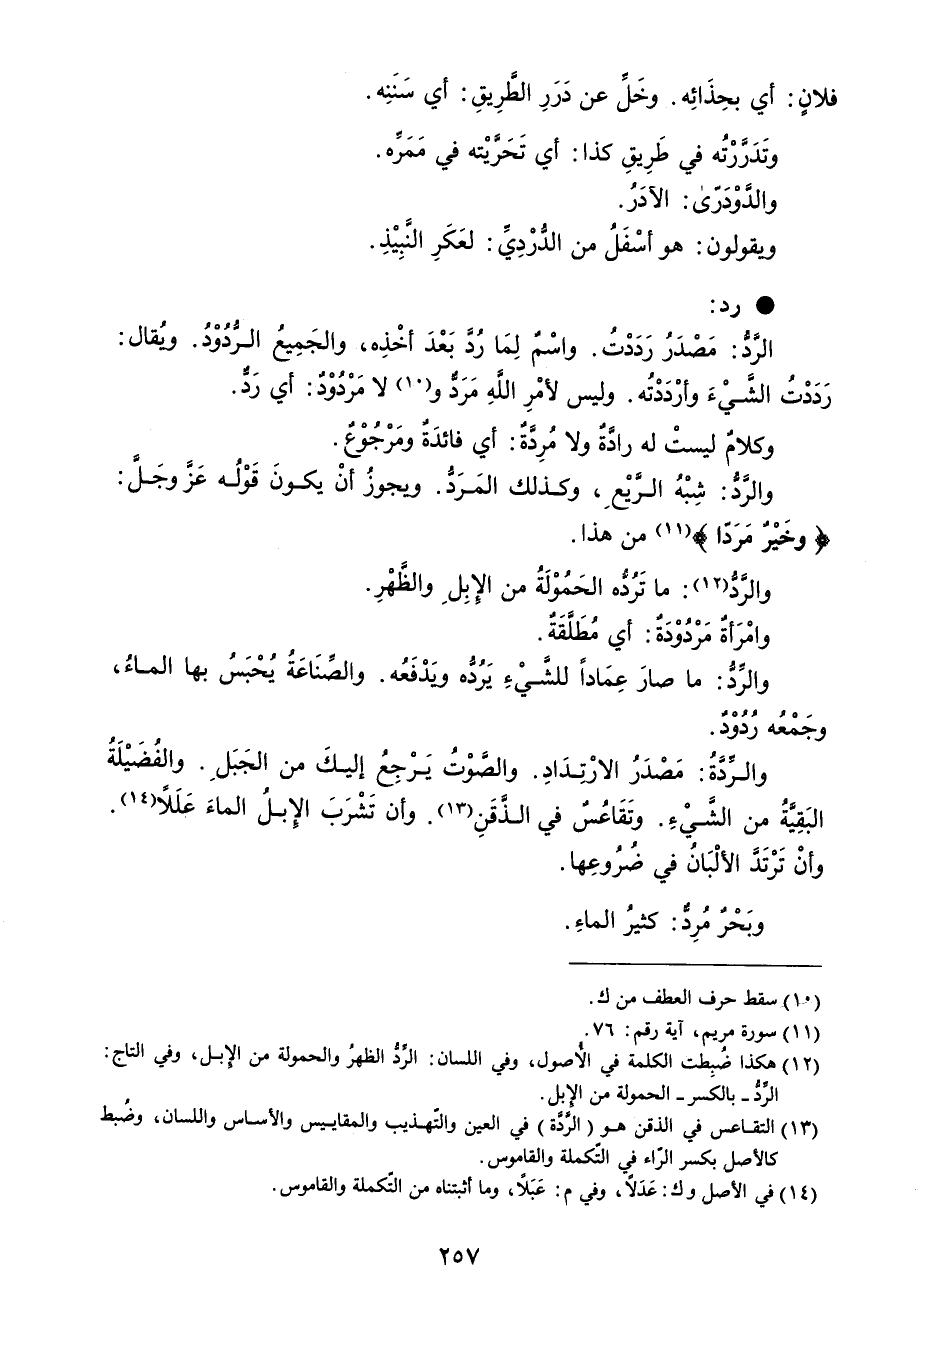 فلانٍ: أي بحِذَائِه. وخَلِّ عن دَرَرِ الطَّرِيقِ: أي سَنَنِه.
وتَدَرَّرْتُه في طَرِيقِ كذا: أي تَحَرَّيْته في مَمَرِّه.
والدَّوْدَرّىٰ: الآدَرُ.
ويقولون: هو أسْفَلُ من الدُّرْدِيِّ: لعَكَرِ النَّبِيْذِ.
● رد:
الرَّدُّ: مَصْدَرُ رَدَدْتُ. واسْمٌ لِمَا رُدَّ بَعْدَ أخْذِه، والجَمِيعُ الـرُّدُوْدُ. ويُقال:
رَدَدْتُ الشَّـيْءَ وأرْدَدْتُه. وليس لأمْرِ اللَّهِ مَرَدٌّ و(١٠) لا مَرْدُوْدٌ: أي رَدٌّ.
وكلامٌ ليستْ له رادَّةٌ ولا مُرِدَّةٌ: أي فائدَةٌ ومَرْجُوْعٌ.
والرَّدُّ: شِبْهُ الـرَّيْعِ، وكـذلك المَـرَدُّ. ويجوزُ أنْ يكـونَ قَوْلُـه عَزَّ وجَـلَّ:
﴿ وخَيْرٌ مَرَدّا ﴾(١١) من هذا.
والرَّدُّ(١٢): ما تَرُدُّه الحَمُوْلَةُ من الإِبِلِ والظَّهْرِ.
وامْرَأةٌ مَرْدُوْدَةٌ: أي مُطَلَّقَةٌ.
والرِّدُّ: ما صارَ عِمَاداً للشَّـيْءِ يَرُدُّه ويَدْفَعُه. والصِّنَاعَةُ يُحْبَسُ بها المـاءُ،
وجَمْعُه رُدُوْدٌ.
والـرِّدَّةُ: مَصْدَرُ الارْتِـدَادِ. والصَّوْتُ يَـرْجِعُ إليـكَ من الجَبَلِ. والفُضَيْلَةُ
البَقِيَّةُ من الشَّـيْءِ. وتَقَاعُسٌ في الـذَّقَنِ(١٣). وأن تَشْرَبَ الإِبـلُ الماءَ عَلَلاً(١٤).
وأنْ تَرْتَدَّ الألْبَانُ في ضُرُوعِها.
وبَحْرٌ مُرِدٌّ: كثيرُ الماءِ.
(١٠) سقط حرف العطف من ك.
(١١) سورة مريم، آية رقم: ٧٦.
(١٢) هكذا ضُبِطت الكلمة في الأُصول، وفي اللسان: الرِّدُّ الظهرُ والحمولة من الإبـل، وفي التاج:
الرِّدُّ ـ بالكسر ـ الحمولة من الإِبل.
(١٣) التقـاعس في الذقن هـو ( الرَّدَّة ) في العين والتّهـذيب والمقاييـس والأسـاس واللسان، وضُبط
كالأصل بكسر الرّاء في التّكملة والقاموس.
(١٤) في الأصل و ك: عَدَلاً، وفي م: عَبَلاً، وما أثبتناه من التّكملة والقاموس.
٢٥٧